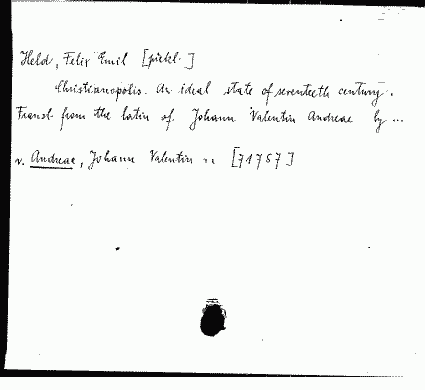 Held, Felix Emil [przekł.]
Christianopolis. An ideal state of seventeeth century.
Transl. from the latin of Johann Valentin Andreae by ...
v. Andreae, Johann Valentin ... [71757]